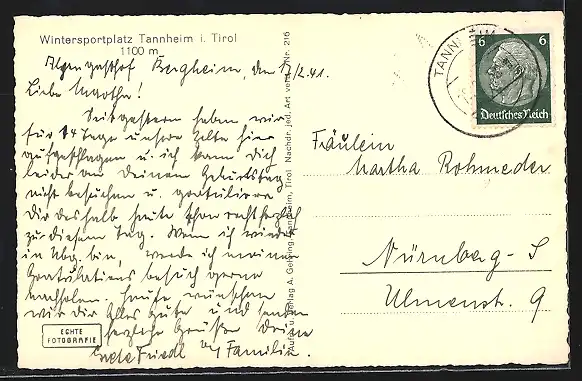 Wintersportplatz Tannheim i. Tirol
1100 m
Alpengasthof Bergheim, den 17/2.41.
Liebe Martha!
Seit gestern haben wir
für 14 Tage unsere Zelte hier
aufgeschlagen u. ich kann Dich
leider an Deinem Geburtstag
nicht besuchen u. gratuliere
Dir deshalb heute schon recht herzlich
zu diesem Tag. Wenn ich wieder
in Nbg. bin, werde ich meinen
Gratulationsbesuch gerne
nachholen. Heute wünschen
wir Dir alles Gute und senden
herzliche Grüße Deine
Friedl u. Familie.
ECHTE
FOTOGRAFIE
Nachdr. jed. Art verb. Nr. 216
Tannheim, Tirol
TANN
6 6
Deutsches Reich
Fräulein
Martha Rohmeder
Nürnberg-S
Ulmenstr. 9